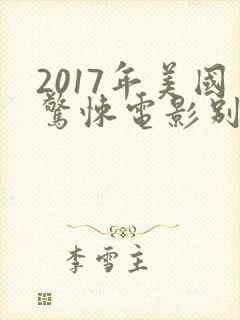 2017年美國
驚悚電影别
李雪主